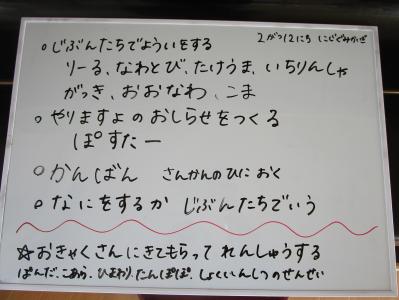 2がつ12にち にじぐみかぎ
○じぶんたちでよういをする
りーる、なわとび、たけうま、いちりんしゃ
がっき、おおなわ、こま
○やりますよのおしらせをつくる
ぽすたー
○かんばん さんかんのひに おく
○なにをするか じぶんたちでいう
☆おきゃくさんにきてもらって れんしゅうする
ぱんだ、こあら、ひまわり、たんぽぽ、しょくいんしつのせんせい